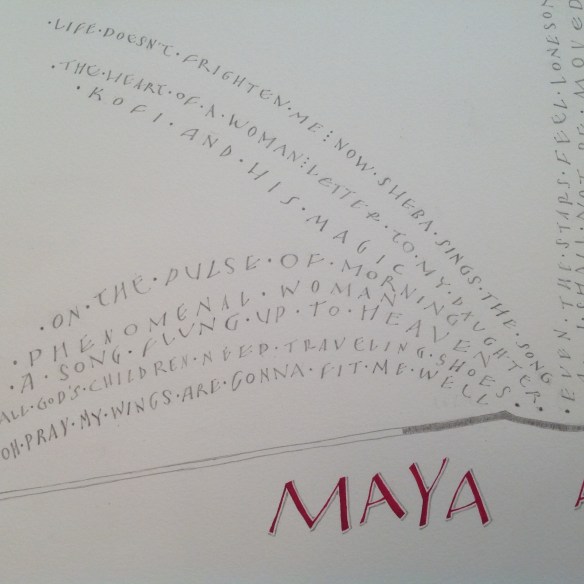 ·LIFE·DOESN'T·FRIGHTEN·ME⋮NOW·SHEBA·SINGS·THE·SONG
·THE·HEART·OF·A·WOMAN⋮LETTER·TO·MY·DAUGHTER·
·KOFI·AND·HIS·MAGIC
·ON·THE·PULSE·OF·MORNING
·PHENOMENAL·WOMAN
·A·SONG·FLUNG·UP·TO·HEAVEN
ALL·GOD'S·CHILDREN·NEED·TRAVELING·SHOES·
OH·PRAY·MY·WINGS·ARE·GONNA·FIT·ME·WELL
·EVEN·THE·STARS·FEEL·LONESOM
SHALL·NOT·BE·MOVED
MAYA A